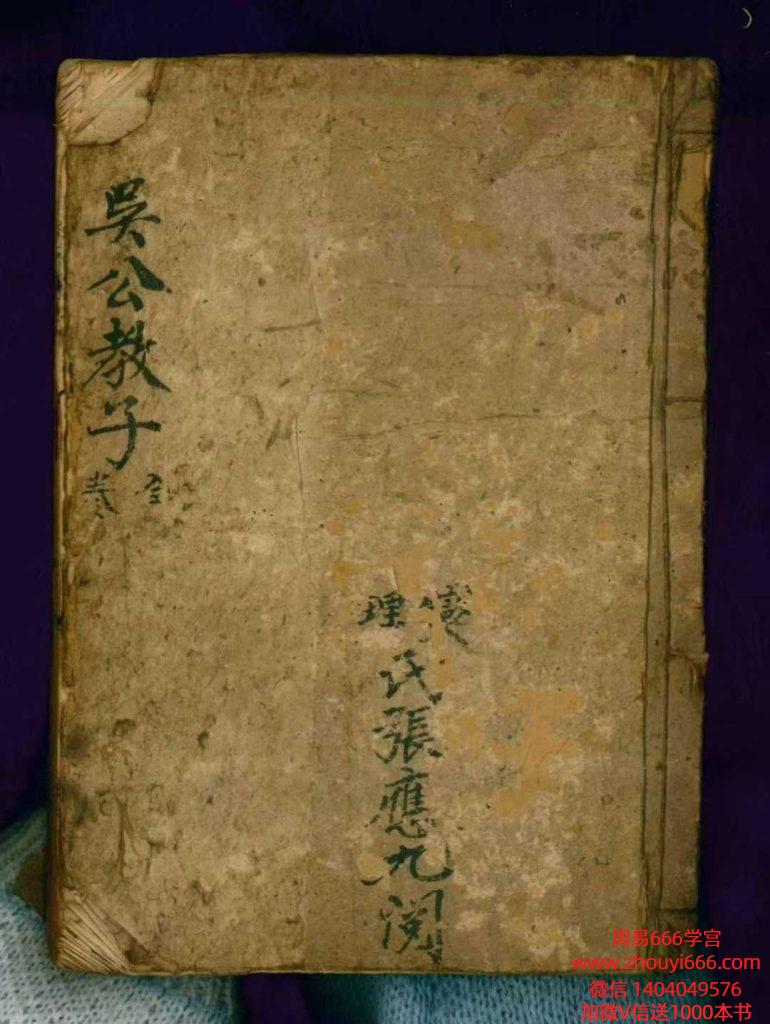 理
氏張應九閱
吳公教子
全
卷
周易666学宫
www.zhouyi666.com
微信 1404049576
加微V信送1000本书